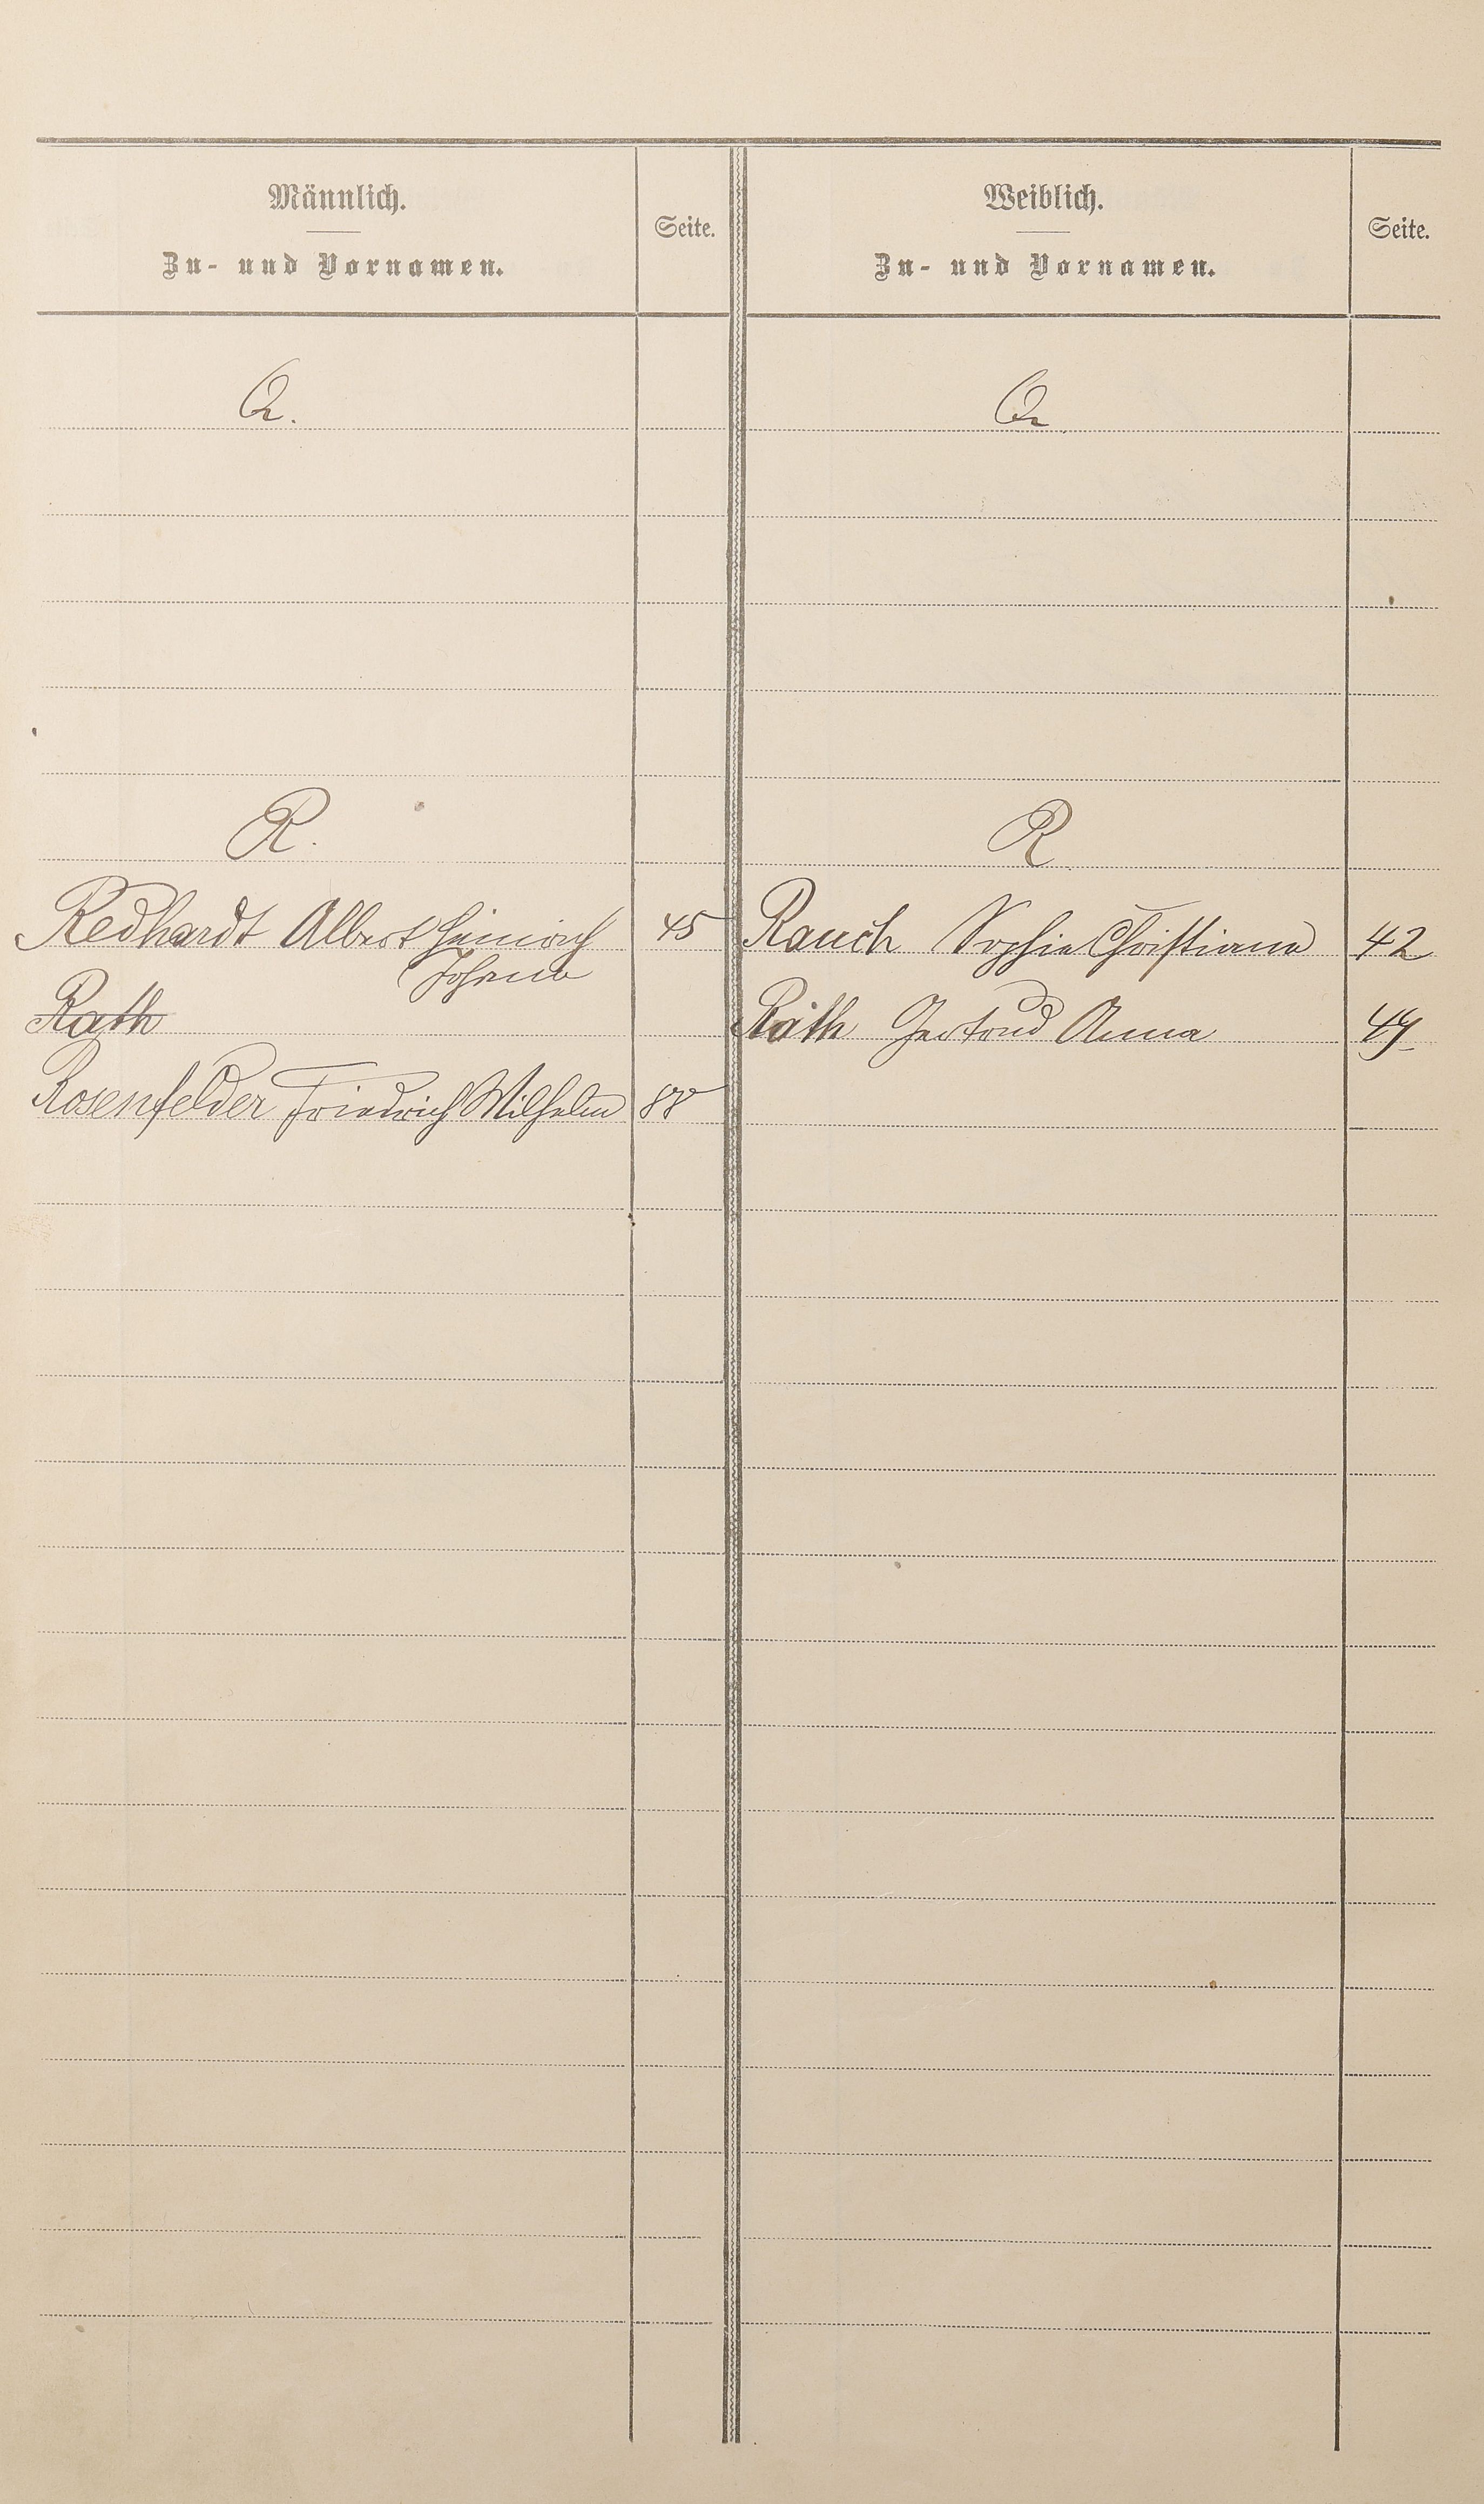 Männlich.
Zu- und Vornamen.
Seite.
Weiblich.
Zu- und Vornamen.
Seite.
Q.
Q.
R.
R.
Redhardt Albert Heinrich 45
Johann
Rauch Sophie Christiane 42
Rath
Räth Gertrud Anna 49
Rosenfelder Friedrich Wilhelm 88